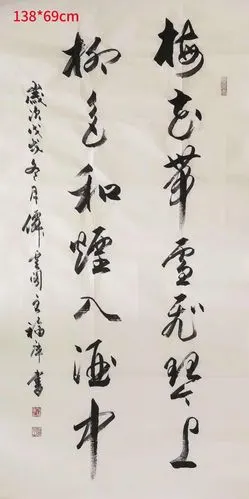 138*69cm
梅花带雪飞琴上
柳色和烟入酒中
岁次戊戌冬月 云阁主 福庠书